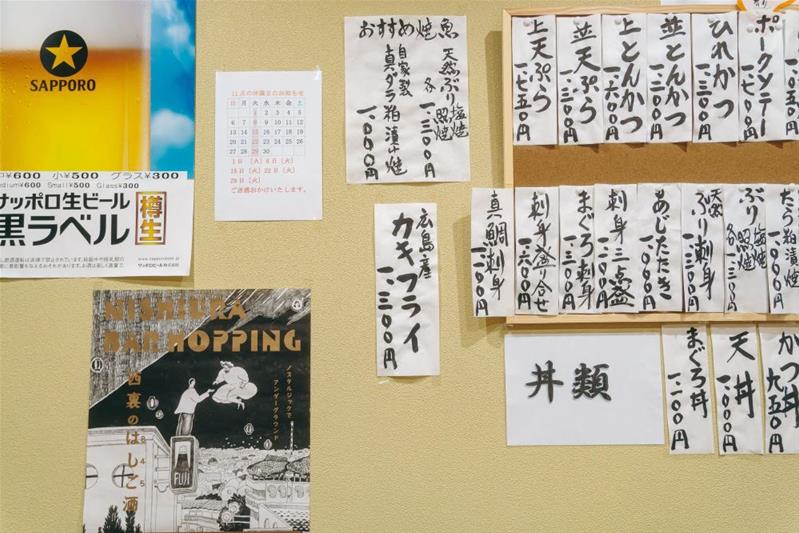 SAPPORO
中¥600 小¥500 グラス¥300
Medium¥600 Small¥500 Glass¥300
サッポロ生ビール
黒ラベル
樽生
サッポロビール株式会社
11月の休業日のお知らせ
日 月 火 水 木 金 土
1 2 3 4 5
6 7 8 9 10 11 12
13 14 15 16 17 18 19
20 21 22 23 24 25 26
27 28 29 30
1日(火)8日(火)
15日(火)22日(火)
29日(火)
ご迷惑おかけいたします。
おすすめ焼魚
天然ぶり塩焼
照焼
各一、三〇〇円
自家製
真ダラ粕漬け焼
一、〇〇〇円
広島産
カキフライ
一、三〇〇円
ポークソテー
ひれかつ
並とんかつ
上とんかつ
一、六〇〇円
並天ぷら
一、三〇〇円
上天ぷら
一、七五〇円
たら粕漬焼
ぶり塩焼
照焼
各一、三〇〇円
天然
ぶり刺身
あじたたき
刺身三点盛
まぐろ刺身
刺身盛り合せ
一、六〇〇円
真鯛刺身
丼類
かつ丼
九五〇円
天丼
まぐろ丼
一、一〇〇円
NISHIURA
BAR HOPPING
ノスタルジックで
アンダーグラウンド
西裏のはしご酒
8 4 5
FUJI